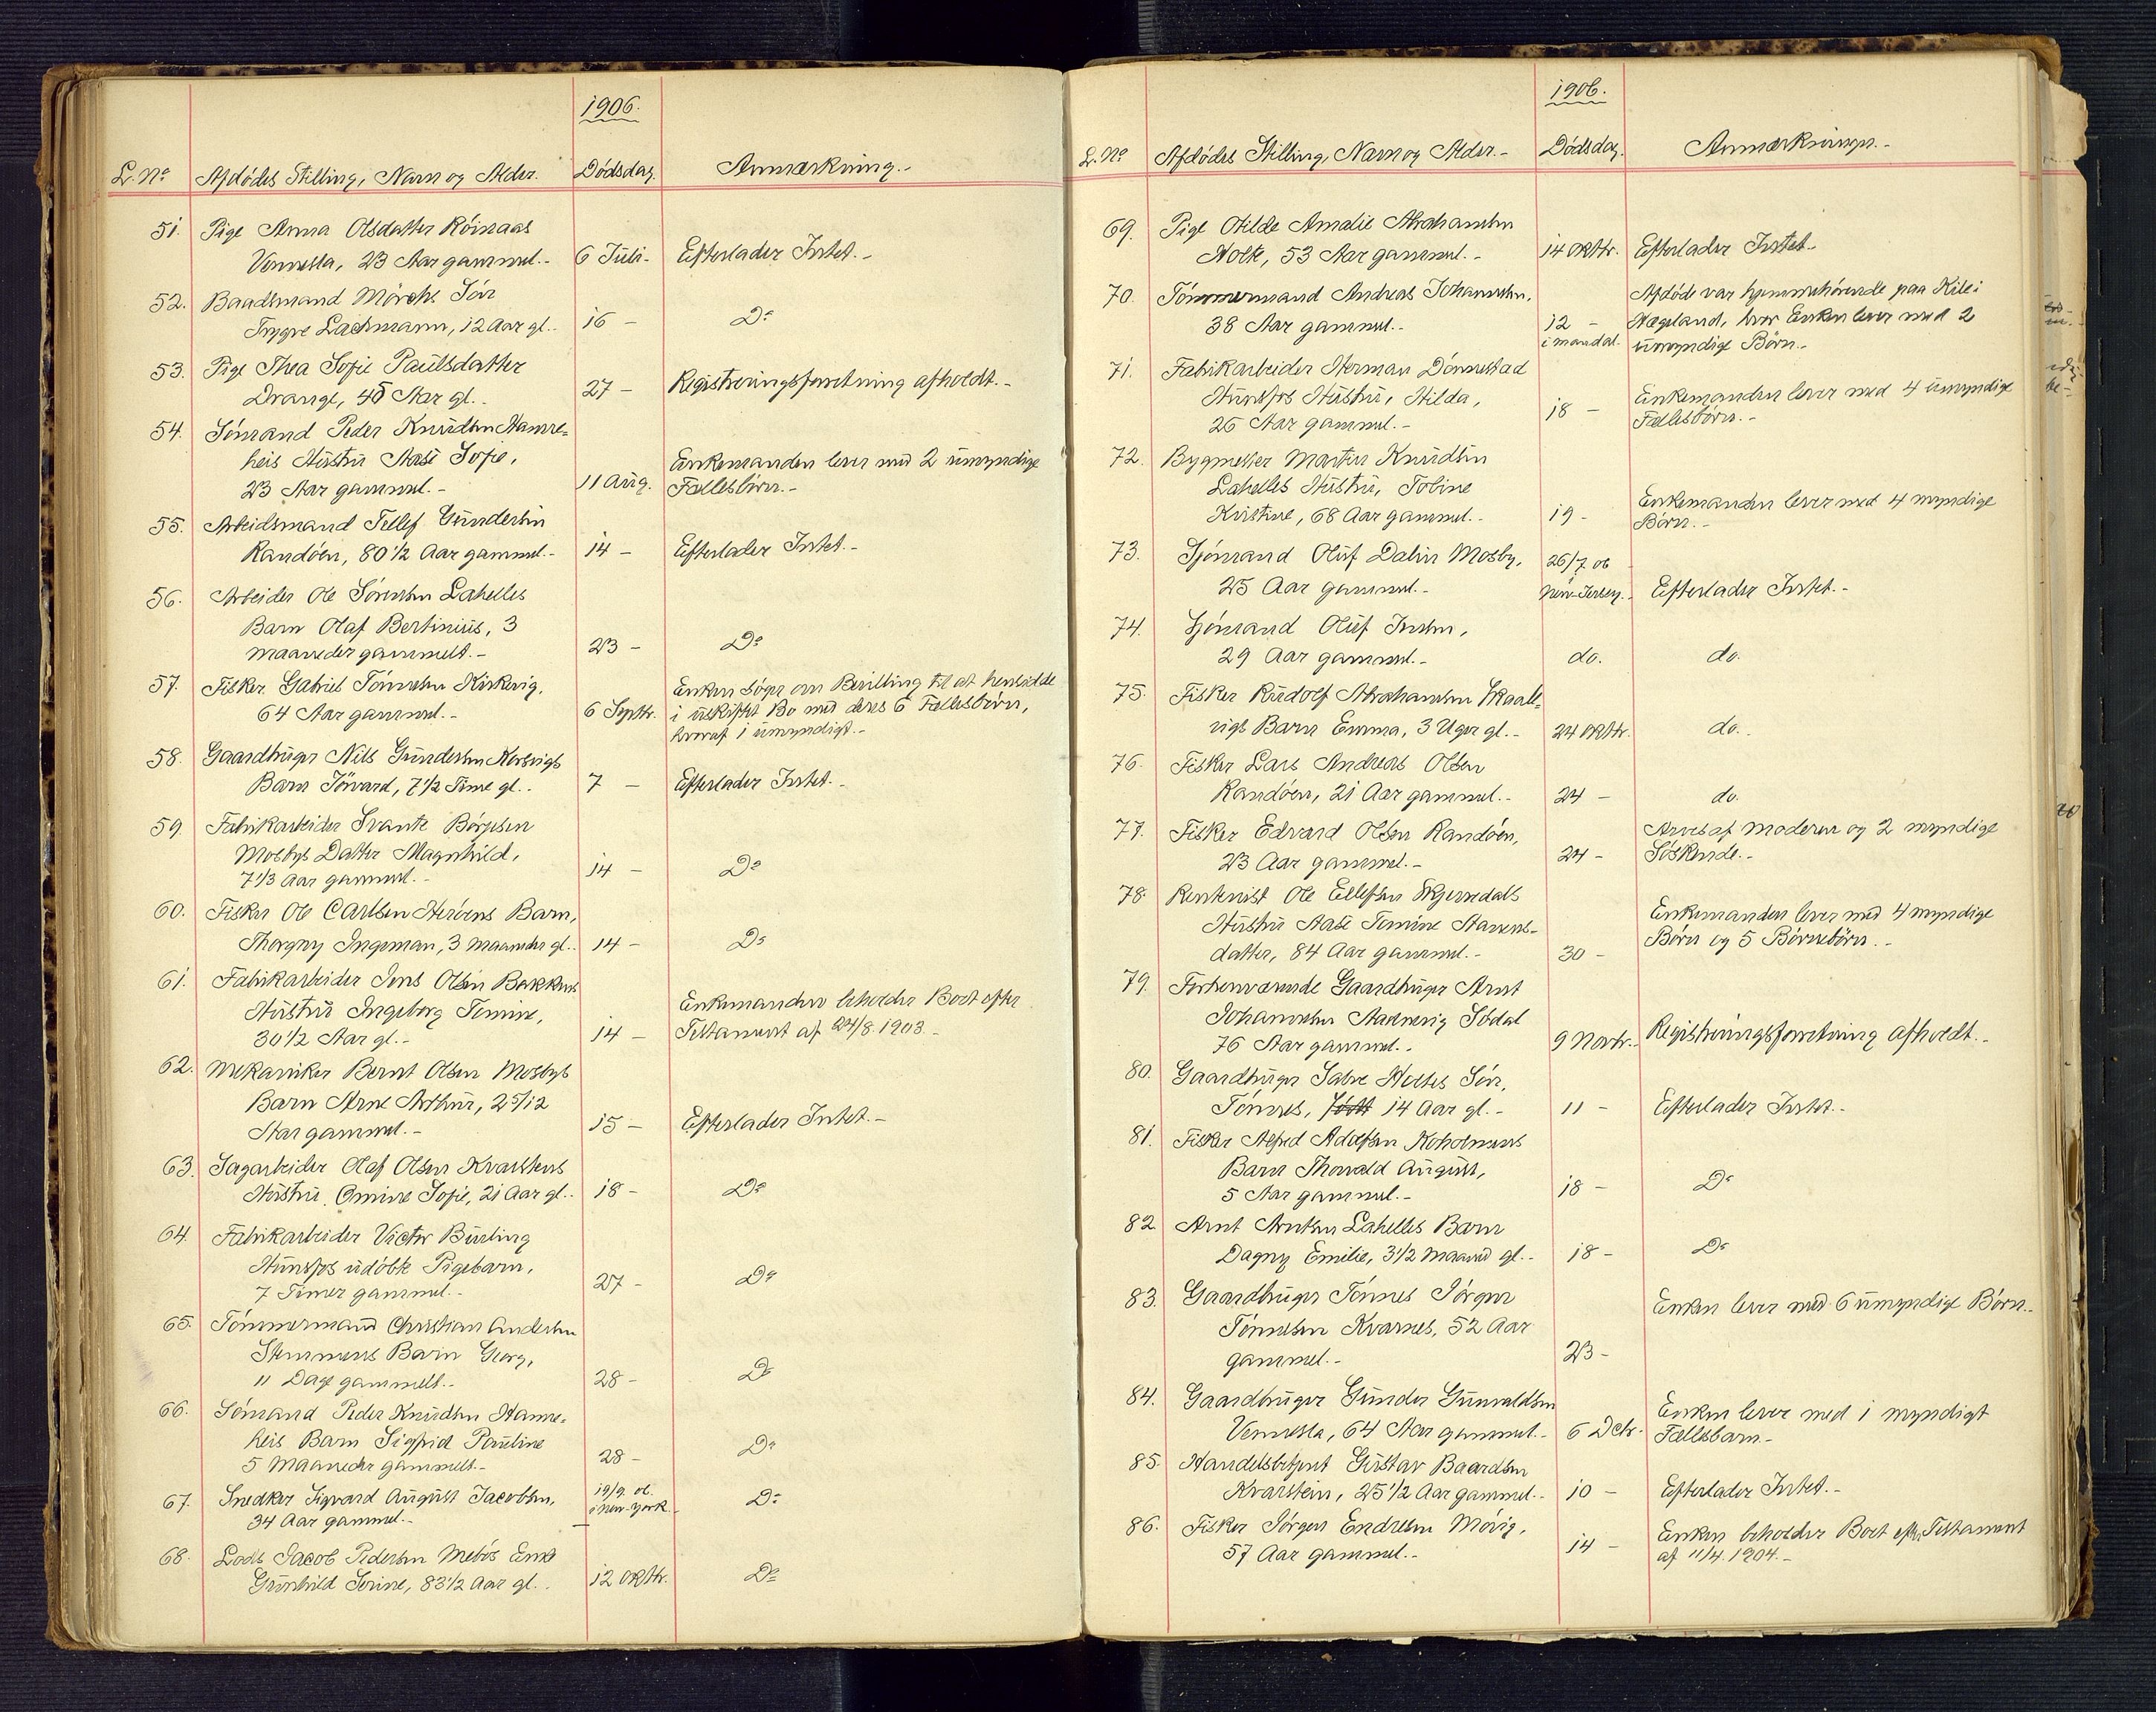 1906.
L. No Afdødes Stilling, Navn og Alder. Dødsdag. Anmærkning.-
51. Pige Anna Olsdatter Röinaas
Vennesla, 23 Aar gammel.- 6 Juli- Efterlader Intet.-
52. Baadsmand Mörchs Sön
Trygve Lachmann, 12 Aar gl.- 16 - Do
53. Pige Thea Sofie Paulsdatter
Drange, 45 Aar gl.- 27 - Registreringsforretning afholdt.-
54. Sömand Peder Knudsen Hamre-
heis Hustru Aase Sofie,
23 Aar gammel.- 11 Aug. Enkemanden lever med 2 umyndige
Fællesbörn.-
55. Arbeidsmand Tellef Gundersen
Randöen, 80 1/2 Aar gammel- 14 - Efterlader Intet.-
56. Arbeider Ole Sörensen Lahelles
Barn Olaf Bertinius, 3
maaneder gammelt.- 23 - Do
57. Fisker Gabriel Tönnesen Kirkevig,
64 Aar gammel.- 6 Septbr. Enken söger om Bevilling til at hensidde
i uskiftet Bo med deres 6 Fællesbörn,
hvoraf 1 umyndigt.-
58. Gaardbruger Nils Gundersen Korsvigs
Barn Törvard, 7 1/2 Time gl.- 7 - Efterlader Intet.-
59. Fabrikarbeider Svante Börjesen
Mosbys Datter Magnhild,
7 1/3 Aar gammel.- 14 - Do
60. Fisker Ole Carlsen Heröens Barn,
Thorgny Ingeman, 3 maaneder gl.- 14 - Do
61. Fabrikarbeider Jens Olsen Bakkens
Hustru Ingeborg Tomine,
30 1/2 Aar gl.- 14 - Enkemanden beholder Boet efter
Testament af 24/8. 1903.-
62. Mekaniker Bernt Olsen Mosbys
Barn Arne Arthur, 2 5/12
Aar gammel.- 15 - Efterlader Intet.-
63. Sagarbeider Olaf Olsen Kvarsteins
Hustru Omine Sofie, 21 Aar gl.- 18 - Do
64. Fabrikarbeider Victor Burling
Hunsfos udöbte Pigebarn,
7 Timer gammel.- 27 - Do
65. Tömmermand Christian Andersen
Stemmens Barn Georg,
11 Dage gammelt.- 28 - Do
66. Sömand Peder Knudsen Hamre-
heis Barn Sigfrid Pauline
5 Maaneder gammelt.- 28 - Do
67. Snedker Sigvard August Jacobsen,
34 Aar gammel.- 19/9. 06. i New-York. Do
68. Lods Jacob Pedersen Mebös Enke
Gunhild Serine, 83 1/2 Aar gl.- 12 Oktbr. Do
1906.
L. No Afdødes Stilling, Navn og Alder.- Dødsdag. Anmærkninger.-
69. Pige Otilde Amalie Abrahamsen
Holte, 53 Aar gammel.- 14 Oktbr. Efterlader Intet.-
70. Tömmermand Andreas Johannesen,
38 Aar gammel.- 12 - i Mandal. Afdöde var hjemmehörende paa Kile i
Hægeland, hvor Enken lever med 2
umyndige Börn.-
71. Fabrikarbeider Herman Dönnestad
Hunsfos Hustru, Hilda,
26 Aar gammel.- 18 - Enkemanden lever med 4 umyndige
Fællesbörn.-
72. Bygmester Martin Knudsen
Lahelles Hustru, Toline
Kristine, 68 Aar gammel.- 19 - Enkemanden lever med 4 myndige
Börn.-
73. Sjömand Oluf Dalin Mosby, 26/7. 06
25 Aar gammel.- New-Jersey. Efterlader Intet.-
74. Sjömand Oluf Jensen,
29 Aar gammel.- do. do.
75. Fisker Rudolf Abrahamsen Skaale-
vigs Barn Emma, 3 Uger gl.- 24 Oktbr. do.
76. Fisker Lars Andreas Olsen
Randöen, 21 Aar gammel.- 24 - do.
77. Fisker Edvard Olsen Randöen,
23 Aar gammel.- 24 - Arves af Moderen og 2 myndige
Söskende.-
78. Rentenist Ole Ellefsen Skjerredals
Hustru Aase Tomine Stavens-
datter, 84 Aar gammel.- 30 - Enkemanden lever med 4 myndige
Börn og 5 Börnebörn.-
79. Forhenværende Gaardbruger Arnt
Johannesen Aadnevig Södal
76 Aar gammel.- 9 Novbr.- Registreringsforretning afholdt.-
80. Gaardbruger Salve Holtes Sön,
Tönnes, född 14 Aar gl.- 11 - Efterlader Intet.-
81. Fisker Alfred Adolfsen Koholmens
Barn Thorvald August,
5 Aar gammel.- 18 - Do
82. Arnt Arntsen Lahelles Barn
Dagny Emilie, 3 1/2 Maaned gl.- 18 - Do
83. Gaardbruger Tönnes Jörgen
Tönnesen Kvarnes, 52 Aar
gammel.- 23 - Enken lever med 6 umyndige Börn.-
84. Gaardbruger Gunder Gunvaldsen
Vennesla, 64 Aar gammel.- 6 Dcbr. Enken lever med 1 myndigt
Fællesbarn.-
85. Handelsbetjent Gustav Baardsen
Kvarstein, 25 1/2 Aar gammel.- 10 - Efterlader Intet.-
86. Fisker Jörgen Endresen Mövig,
57 Aar gammel.- 14 - Enken beholder Boet efter Testament
af 11/4. 1904.-